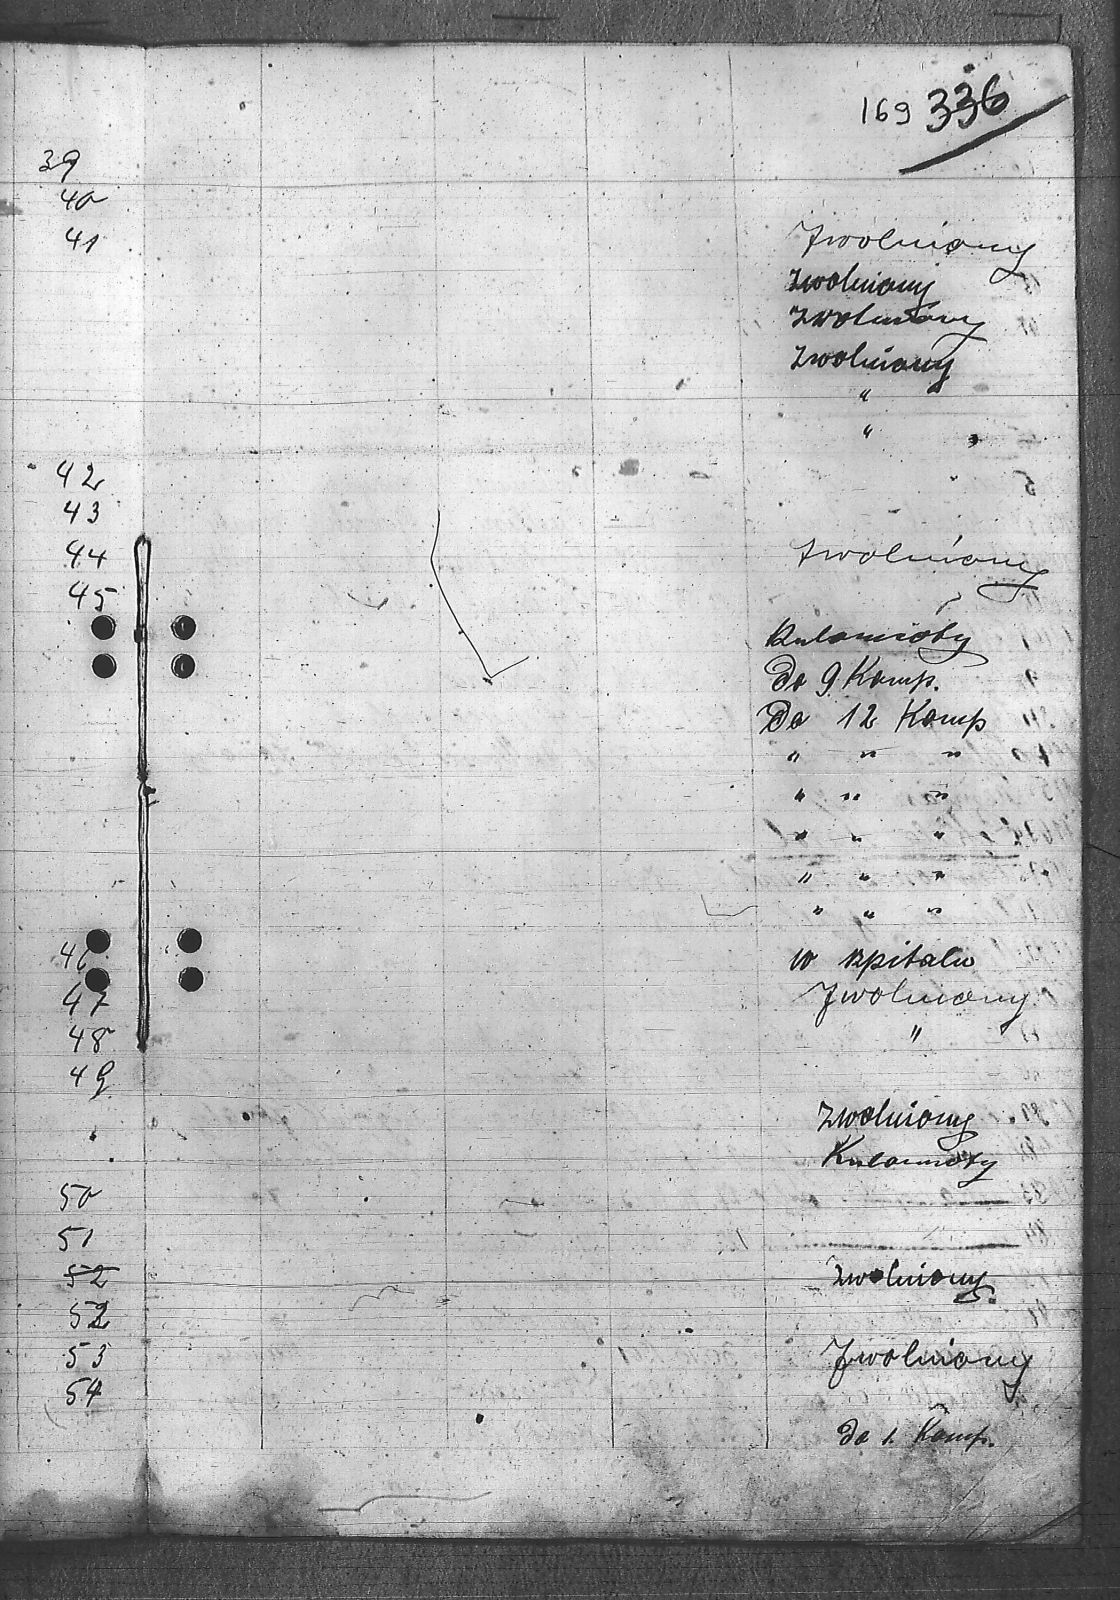 169 336
39
40
41 Zwolniony
Zwolniony
Zwolniony
Zwolniony
"
"
42
43
44 Zwolniony
45
Kulomioty
Do 9 Komp.
Do 12 Komp
" " "
" " "
" " "
" " "
" " "
46 w szpitalu
47 Zwolniony
48 "
49
Zwolniony
Kulomioty
50
51
52 Zwolniony
52
53 Zwolniony
54
Do 1. Komp.